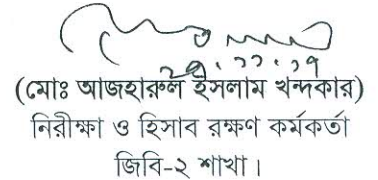 ২৯.১১.১৭
(মোঃ আজহারুল ইসলাম খন্দকার)
নিরীক্ষা ও হিসাব রক্ষণ কর্মকর্তা
জিবি-২ শাখা।